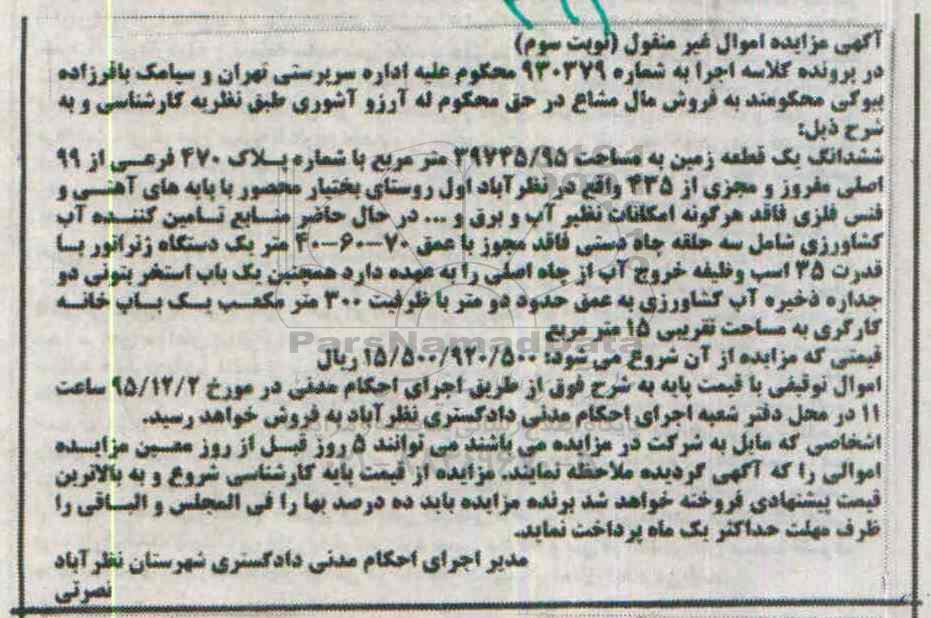 آگهی مزایده اموال غیر منقول (نوبت سوم)
در پرونده کلاسه اجرا به شماره ۹۳۰۳۷۹ محکوم علیه اداره سرپرستی تهران و سیامک باقرزاده
بیوکی محکومند به فروش مال مشاع در حق محکوم له آرزو آشوری طبق نظریه کارشناسی و به
شرح ذیل:
ششدانگ یک قطعه زمین به مساحت ۳۹۷۴۵/۹۵ متر مربع با شماره پلاک ۴۷۰ فرعی از ۹۹
اصلی مفروز و مجزی از ۴۳۵ واقع در نظرآباد اول روستای بختیار محصور با پایه های آهنی و
فنس فلزی فاقد هرگونه امکانات نظیر آب و برق و ... در حال حاضر منابع تامین کننده آب
کشاورزی شامل سه حلقه چاه دستی فاقد مجوز با عمق ۷۰-۶۰-۴۰ متر یک دستگاه ژنراتور با
قدرت ۳۵ اسب وظیفه خروج آب از چاه اصلی را به عهده دارد همچنین یک باب استخر بتونی دو
جداره ذخیره آب کشاورزی به عمق حدود دو متر با ظرفیت ۳۰۰ متر مکعب یک باب خانه
کارگری به مساحت تقریبی ۱۵ متر مربع
ParsNamadData
قیمتی که مزایده از آن شروع می شود: ۱۵/۵۰۰/۹۲۰/۵۰۰ ریال
اموال توقیفی با قیمت پایه به شرح فوق از طریق اجرای احکام مدنی در مورخ ۹۵/۱۲/۲ ساعت
۱۱ در محل دفتر شعبه اجرای احکام مدنی دادگستری نظرآباد به فروش خواهد رسید.
اشخاصی که مایل به شرکت در مزایده می باشند می توانند ۵ روز قبل از روز معین مزایده
اموالی را که آگهی گردیده ملاحظه نمایند. مزایده از قیمت پایه کارشناسی شروع و به بالاترین
قیمت پیشنهادی فروخته خواهد شد برنده مزایده باید ده درصد بها را فی المجلس و الباقی را
ظرف مهلت حداکثر یک ماه پرداخت نماید.
مدیر اجرای احکام مدنی دادگستری شهرستان نظرآباد
نصرتی